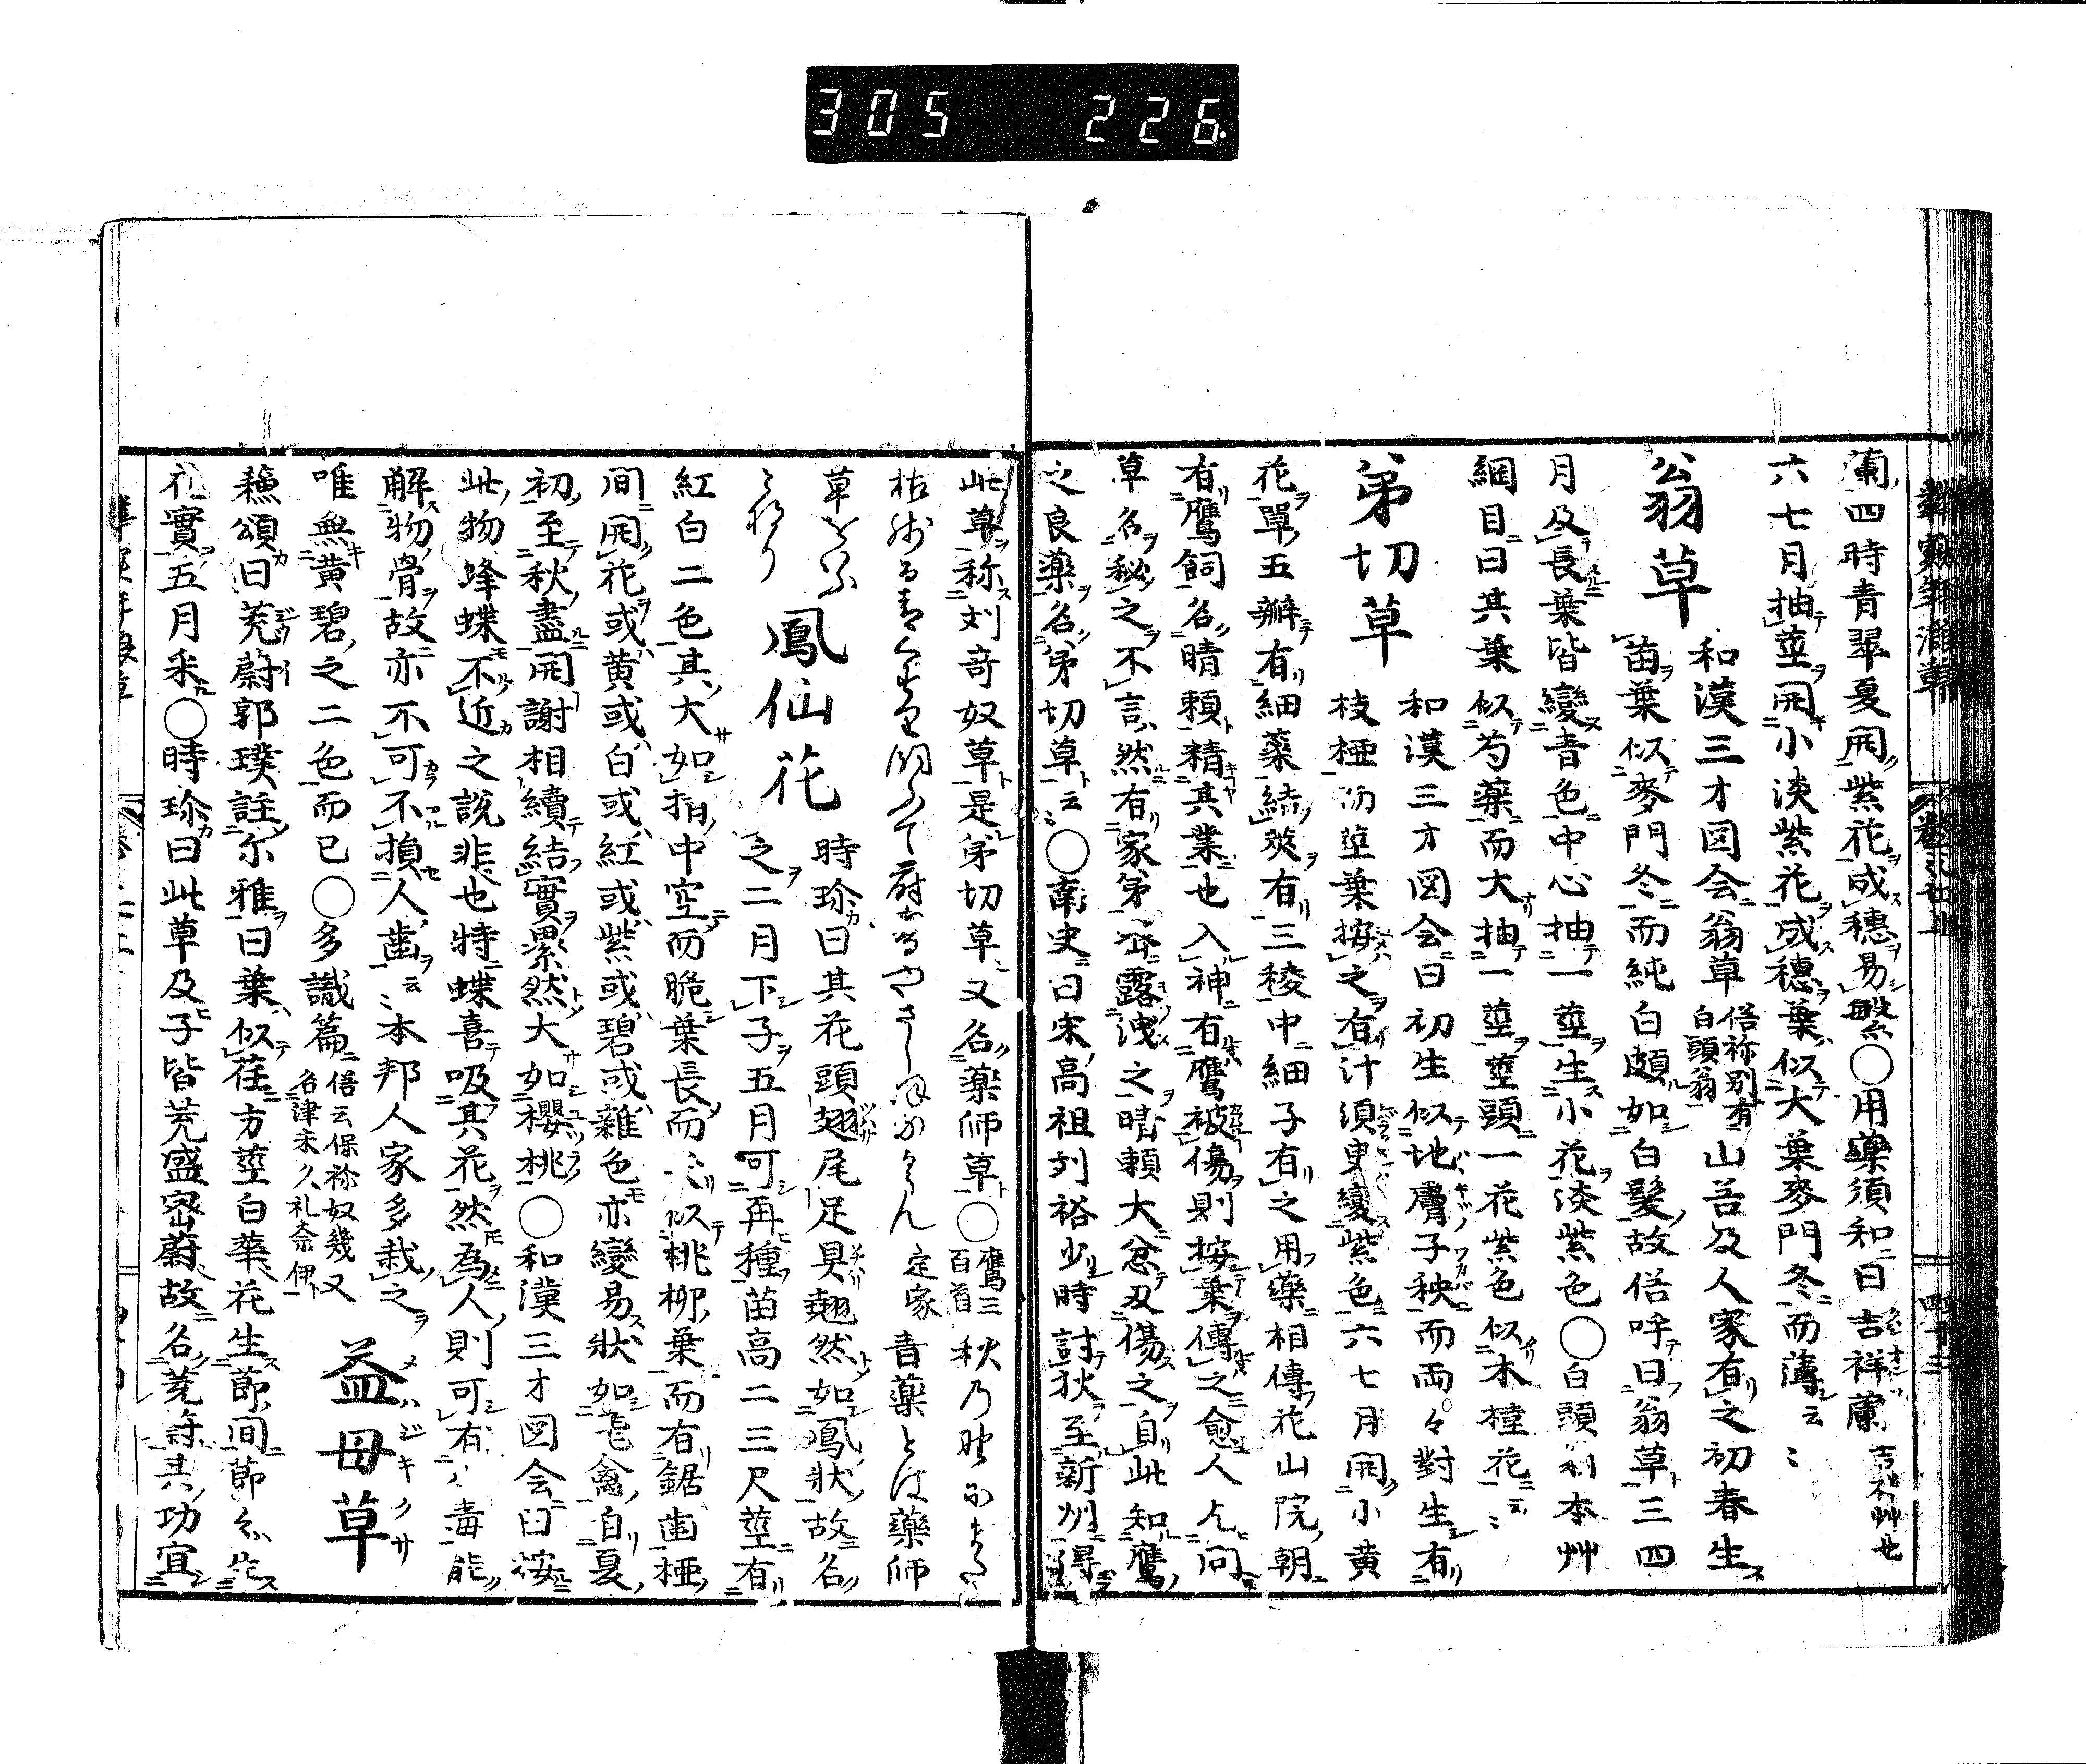 305 226
蘭四時青翠夏開紫花成穗易繁○用藥須和曰吉祥蘭
六七月抽莖開小淡紫花成穗葉似大葉麥門冬而薄云〻
翁草
和漢三才図会翁草
俗祢別有
白頭翁
山谷及人家有之初春生
苗葉似麥門冬而純白頗如白髮故俗呼曰翁草三四
月及長葉皆變青色中心抽一莖生小花淡紫色○白頭翁本艸
綱目曰其葉似芍藥而大抽一莖莖頭一花紫色似木槿花云〻
弟切草
和漢三才図会曰初生似地膚子秧而両々對生有
枝椏而莖葉按之有汁須臾變紫色六七月開小黄
花單五瓣有細蘂結莢有三稜中細子有之用藥相傳花山院朝
有鷹飼名晴頼精其業也入神有鷹被傷則按葉傳之愈人乞問
草名秘之不言然有家弟密露洩之晴頼大忿刃傷之自此知鷹
之良藥名弟切草云〻○南史曰宋高祖刘裕少時討狄至新州得
此草称刘竒奴草是弟切草又名藥師草○
鷹三
百首
秋乃野
定家
青藥とは藥師
草をいふ
鳳仙花
時珍曰其花頭翅尾足具翹然如鳳狀故名
之二月下子五月可再種苗高二三尺莖有
紅白二色其大如指中空而脆葉長而尖似桃柳葉而有鋸齒椏
間開花或黄或白或紅或紫或碧或雜色亦變易狀如飛禽自夏
初至秋盡開謝相續結實累然大如櫻桃○和漢三才図会曰按
此物蜂蝶不近之說非也特蝶喜吸其花然為人則可有小毒能
解物骨故亦不可不損人齒云〻本邦人家多栽之
唯無黄碧之二色而已○多識篇
俗云保祢奴幾又
名津末久礼奈伊
益母草
メハジキクサ
蘓頌曰茺蔚郭璞註尓雅曰葉似荏方莖白華花生節間節々生
花實五月采○時珍曰此草及子皆茺盛密蔚故名茺蔚其功宜